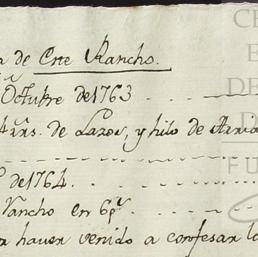 de Este Rancho.
Octubre de 1763
de Lazos, y hilo de
de 1764.
Rancho en 6
haver venido a confesar
CE
E
DE
D
FU